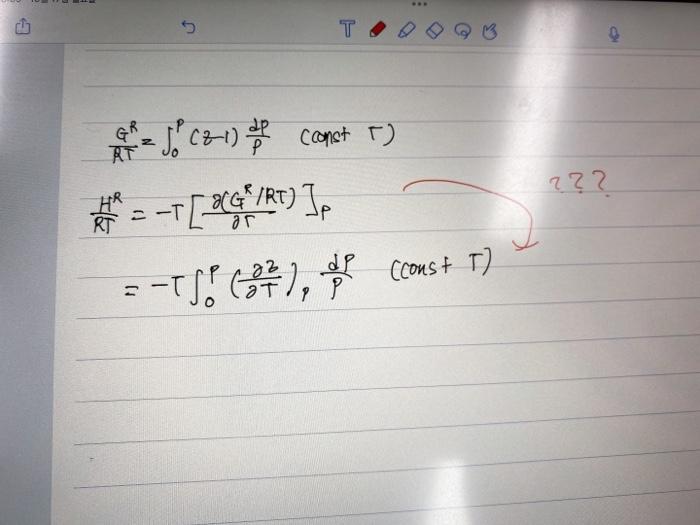 G^R/RT = ∫₀^P (z-1) dP/P (const T)
???
H^R/RT = -T [∂(G^R/RT)/∂T]_P
= -T ∫₀^P (∂z/∂T)_P dP/P (const T)